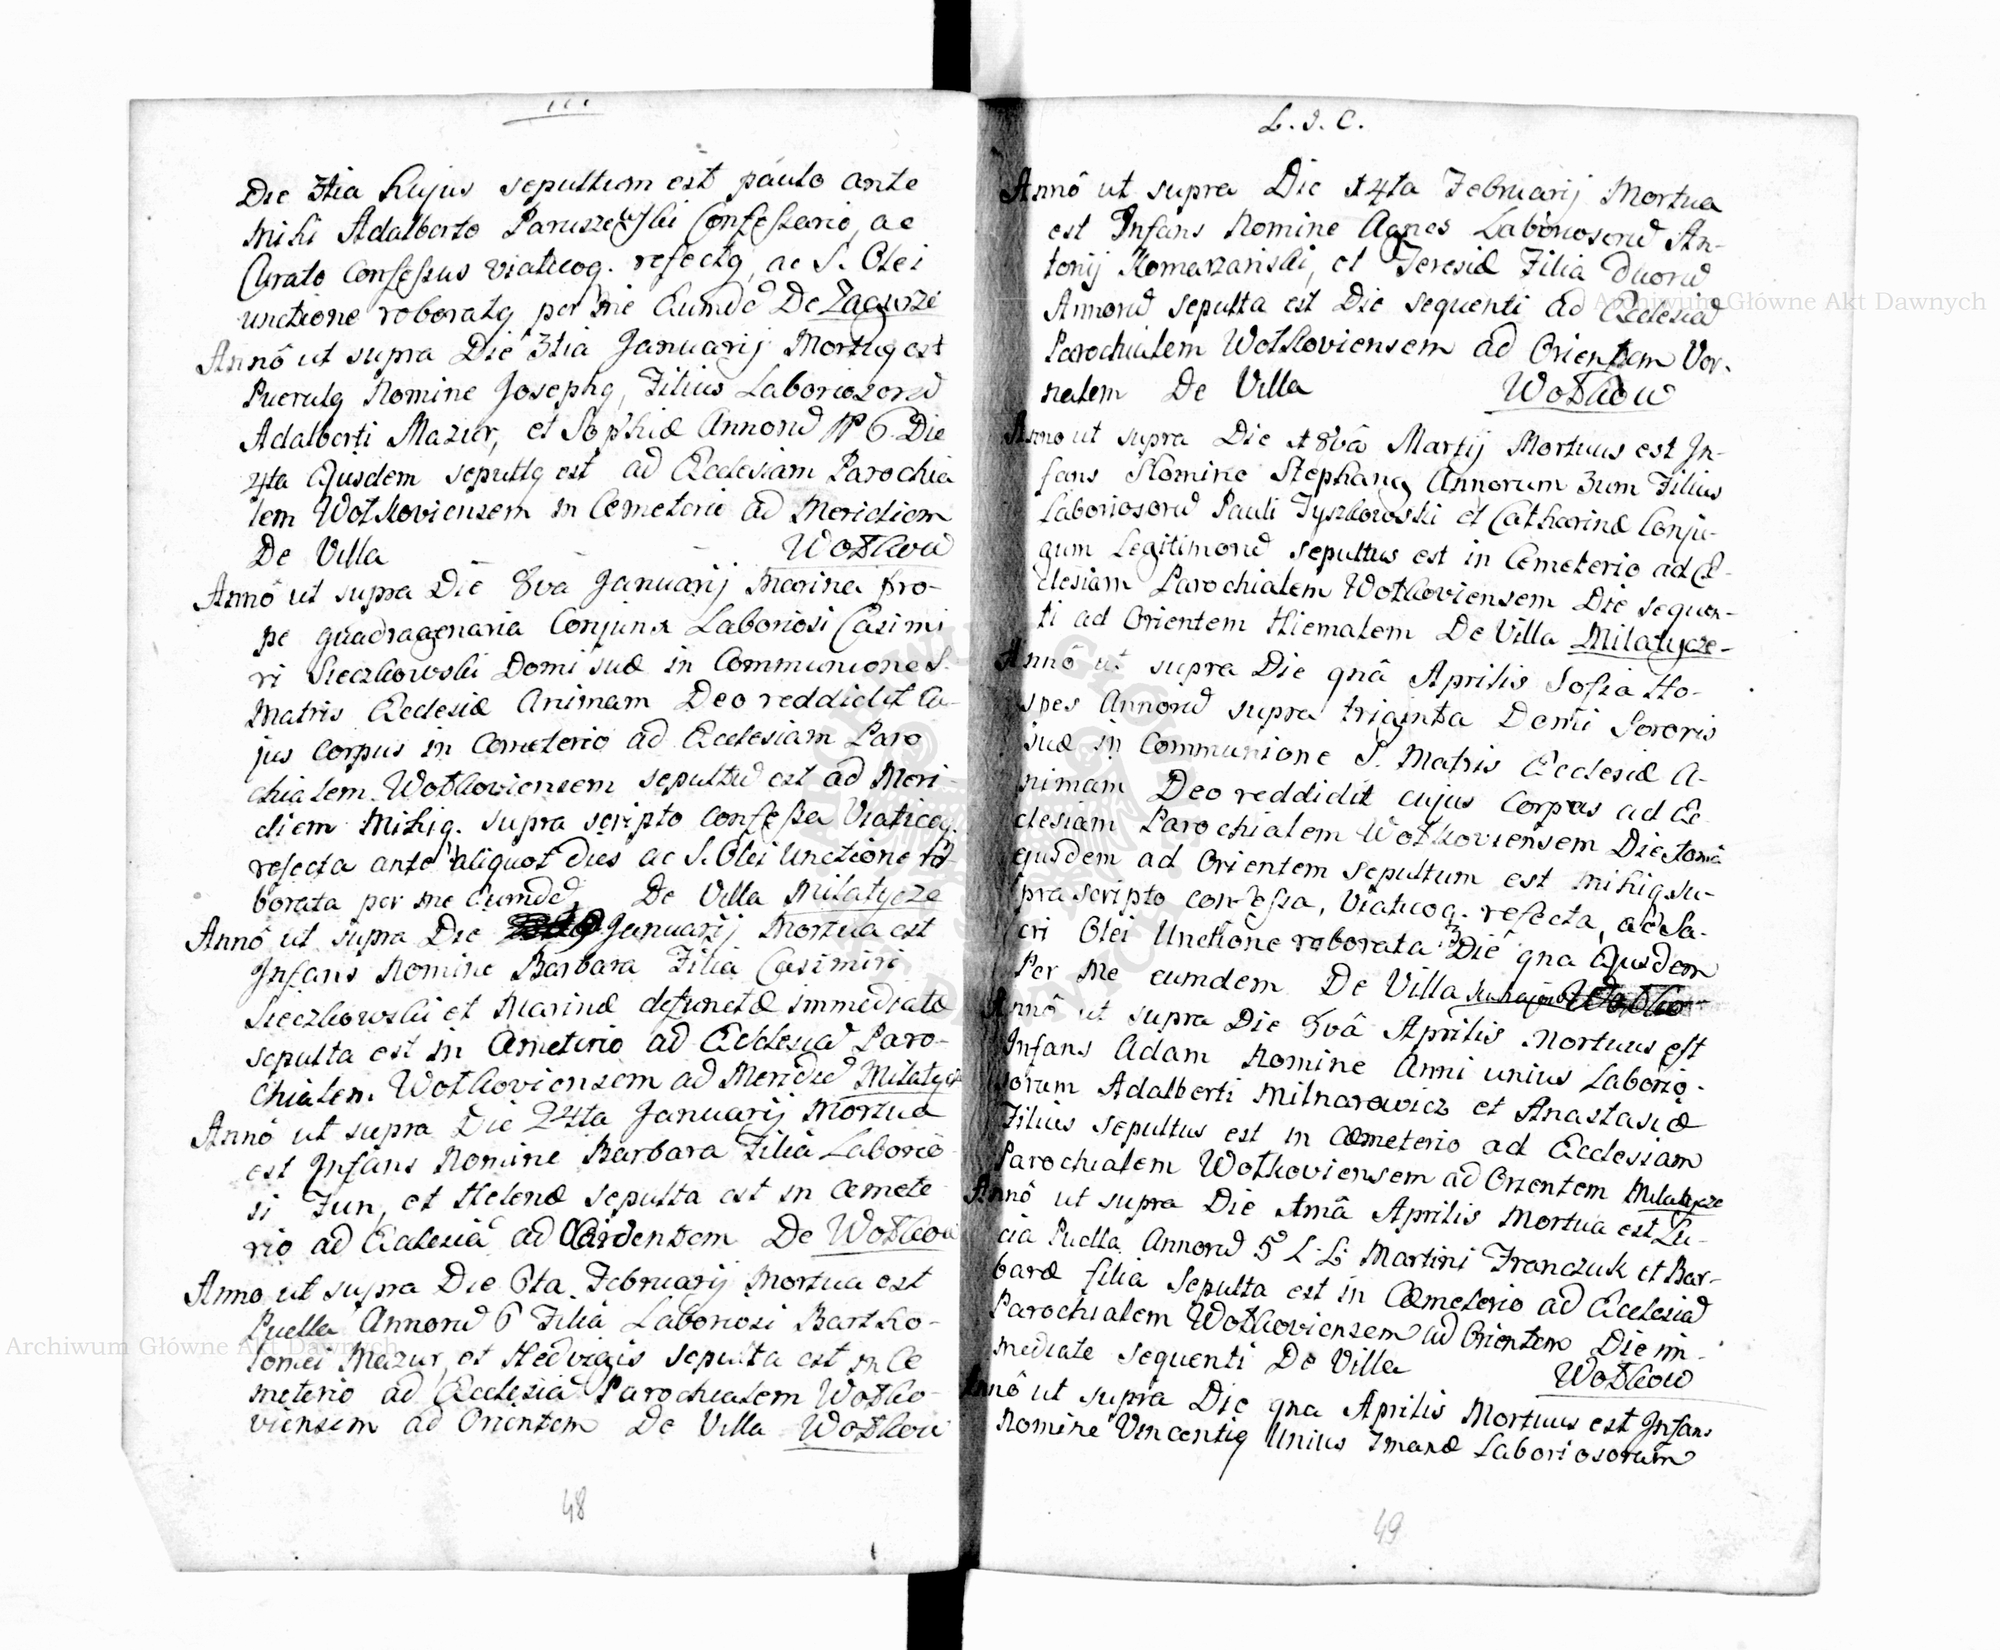 Die 3tia hujus sepultum est paulo ante
Mihi Adalberto Paruszewski Confessario, ac
Curato Confessus viaticoq. refectq, ac S. Olei
unctione roboratq per me Eumdē De
Annô ut supra Die 3tia Januarij Mortuq est
Puerulq Nomine Josephq, Filius Laboriosorū
Adalberti Mazur, et Sophiæ Annorū 6 Die
4ta Ejusdem sepultq est ad Ecclesiam Parochia
lem Wołkoviensem in Cemeterio ad Meridiem
De Villa Wołkow
Annô ut supra Die 8va Januarij Marina pro-
pe quadragenaria Conjunx Laboriosi Casimi
ri Sieczkowski Domi suæ in Communione S.
Matris Ecclesiæ Animam Deo reddidit Cu-
jus corpus in Cemeterio ad Ecclesiam Paro
chialem Wołkoviensem sepultū est ad Meri-
diem Mihiq. supra scripto confessa Viaticoq.
refecta ante aliquot dies ac S. Olei Unctione ro-
borata per me Eumdē De Villa Milatycze
Annô ut supra Die Januarij Mortua est
Infans Nomine Barbara Filia Casimiri
Sieczkowski et Marinæ defunctæ immediate
sepulta est in Cemeterio ad Ecclesiā Paro-
chialem Wołkoviensem ad Meridiē Milatycze
Annô ut supra Die 24ta Januarij Mortua
est Infans Nomine Barbara Filia Laborio
si Fun, et Helenæ sepulta est in Cemete
rio ad Ecclesiā ad De Wołkow
Anno ut supra Die 6ta Februarij Mortua est
Puella Annorū 6 Filia Laboriosi Bartho-
lomei Mazur, et Hedvigis sepulta est in Ce
meterio ad Ecclesiā Parochialem Wołko-
viensem ad Orientem De Villa Wołkow
48
L. J. C.
Annô ut supra Die 14ta Februarij Mortua
est Infans Nomine Agnes Laboriosorū An-
tonij Komarzański, et Teresiæ Filia duorū
Annorū sepulta est Die sequenti ad Ecclesiā
Parochialem Wołkoviensem ad Orientem Ver-
nalem De Villa Wołkow
Anno ut supra Die 18vâ Martij Mortuus est In-
fans Nomine Stephanq Annorum 3um Filius
Laboriosorū Pauli Tyszkowski et Catharinæ Conju-
gum Legitimorū sepultus est in Cemeterio ad Ec-
clesiam Parochialem Wołkoviensem Die sequen-
ti ad Orientem Hiemalem De Villa Milatycze-
Annô ut supra Die qnâ Aprilis Sofia Ho-
spes Annorū supra triginta Domi Sororis
suæ in Communione S. Matris Ecclesiæ A-
nimam Deo reddidit cujus corpus ad Ec
clesiam Parochialem Wołkoviensem Die
ejusdem ad Orientem sepultum est mihiq su-
pra scripto confessa, Viaticoq. refecta, ac Sa-
cri Olei Unctione roborata Die qna Ejusdem
Per me eumdem De Villa
Annô ut supra Die 8vâ Aprilis Mortuus est
Infans Adam Nomine Anni unius Laborio-
sorum Adalberti Milnarowicz et Anastasiæ
Filius sepultus est in Cæmeterio ad Ecclesiam
Parochialem Wołkoviensem ad Orientem Milatycze
Annô ut supra Die Aprilis Mortua est Lu-
cia Puella Annorū 5 L: L: Martini Franczuk et Bar-
baræ filia Sepulta est in Cæmeterio ad Ecclesiā
Parochialem Wołkoviensem ad Orientem Die im-
mediate sequenti De Villa Wołkow
Annô ut supra Die qna Aprilis Mortuus est Infans
Nomine Vincentiq Unius Laboriosorum
49
Archiwum Główne Akt Dawnych
Archiwum Główne Akt Dawnych